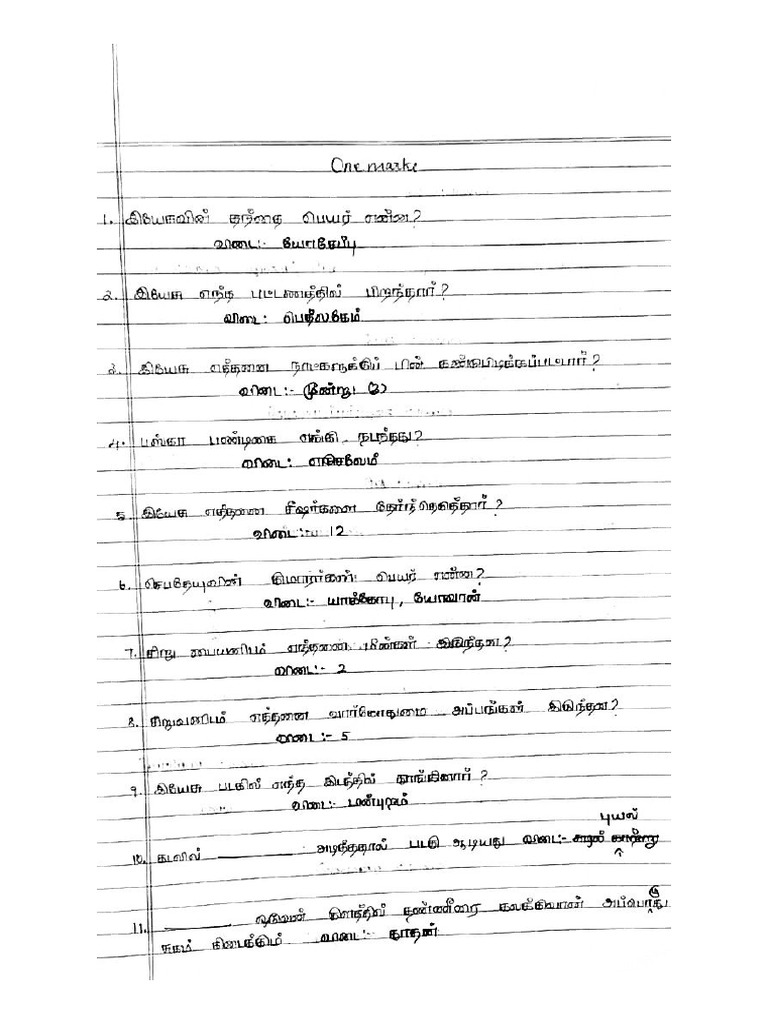 One marks
1. இயேசுவின் தந்தை பெயர் என்ன?
விடை:- யோசேப்பு
2. இயேசு எந்த பட்டணத்தில் பிறந்தார்?
விடை:- பெத்லகேம்
3. இயேசு எத்தனை நாட்களுக்குப் பின் கண்டுபிடிக்கப்பட்டார்?
விடை:- மூன்று (3)
4. பஸ்கா பண்டிகை எங்கு நடந்தது?
விடை:- எருசலேம்
5. இயேசு எத்தனை சீஷர்களை தேர்ந்தெடுத்தார்?
விடை:- 12
6. செபதேயுவின் குமாரர்கள் பெயர் என்ன?
விடை:- யாக்கோபு, யோவான்
7. சிறு பையனிடம் எத்தனை மீன்கள் இருந்தன?
விடை:- 2
8. சிறுவனிடம் எத்தனை வாற்கோதுமை அப்பங்கள் இருந்தன?
விடை:- 5
9. இயேசு படகில் எந்த இடத்தில் தூங்கினார்?
விடை:-
புயல்
10. கடலில் ________ அடித்ததால் படகு ஆடியது விடை:- காற்று
11. ________ ஒருவன் குளத்தில் தண்ணீரை கலக்குவான் அப்பொழுது
சுகம் கிடைக்கும் விடை:- தூதன்